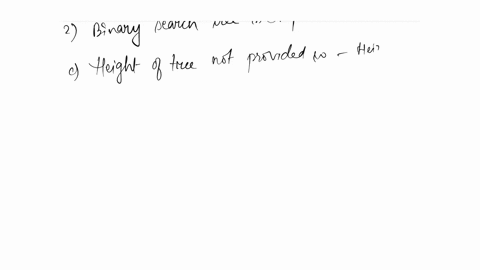 2) Binary search
c) Height of tree not provided so - Hei